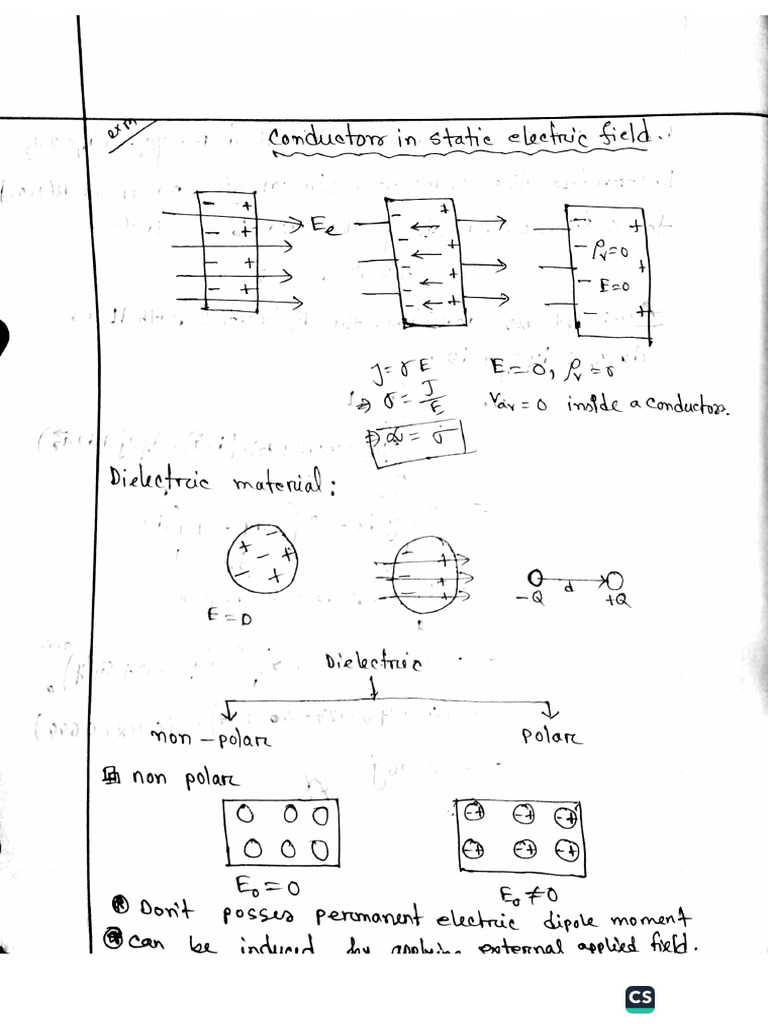 exm
Conductors in static electric field.
- + - + - + - + Ee
- + - + - + - +
- + - + - - + ρv=0 E=0
J = σE E=0, ρv=0
⇒ σ = J/E Vav = 0 inside a conductors.
⇒ α = σ
Dielectric material:
E = 0
-Q d +Q
Dielectric
non-polar polar
non polar
E₀ = 0 E₀ ≠ 0
Don't posses permanent electric dipole moment
can be induced by applying external applied field.
CS